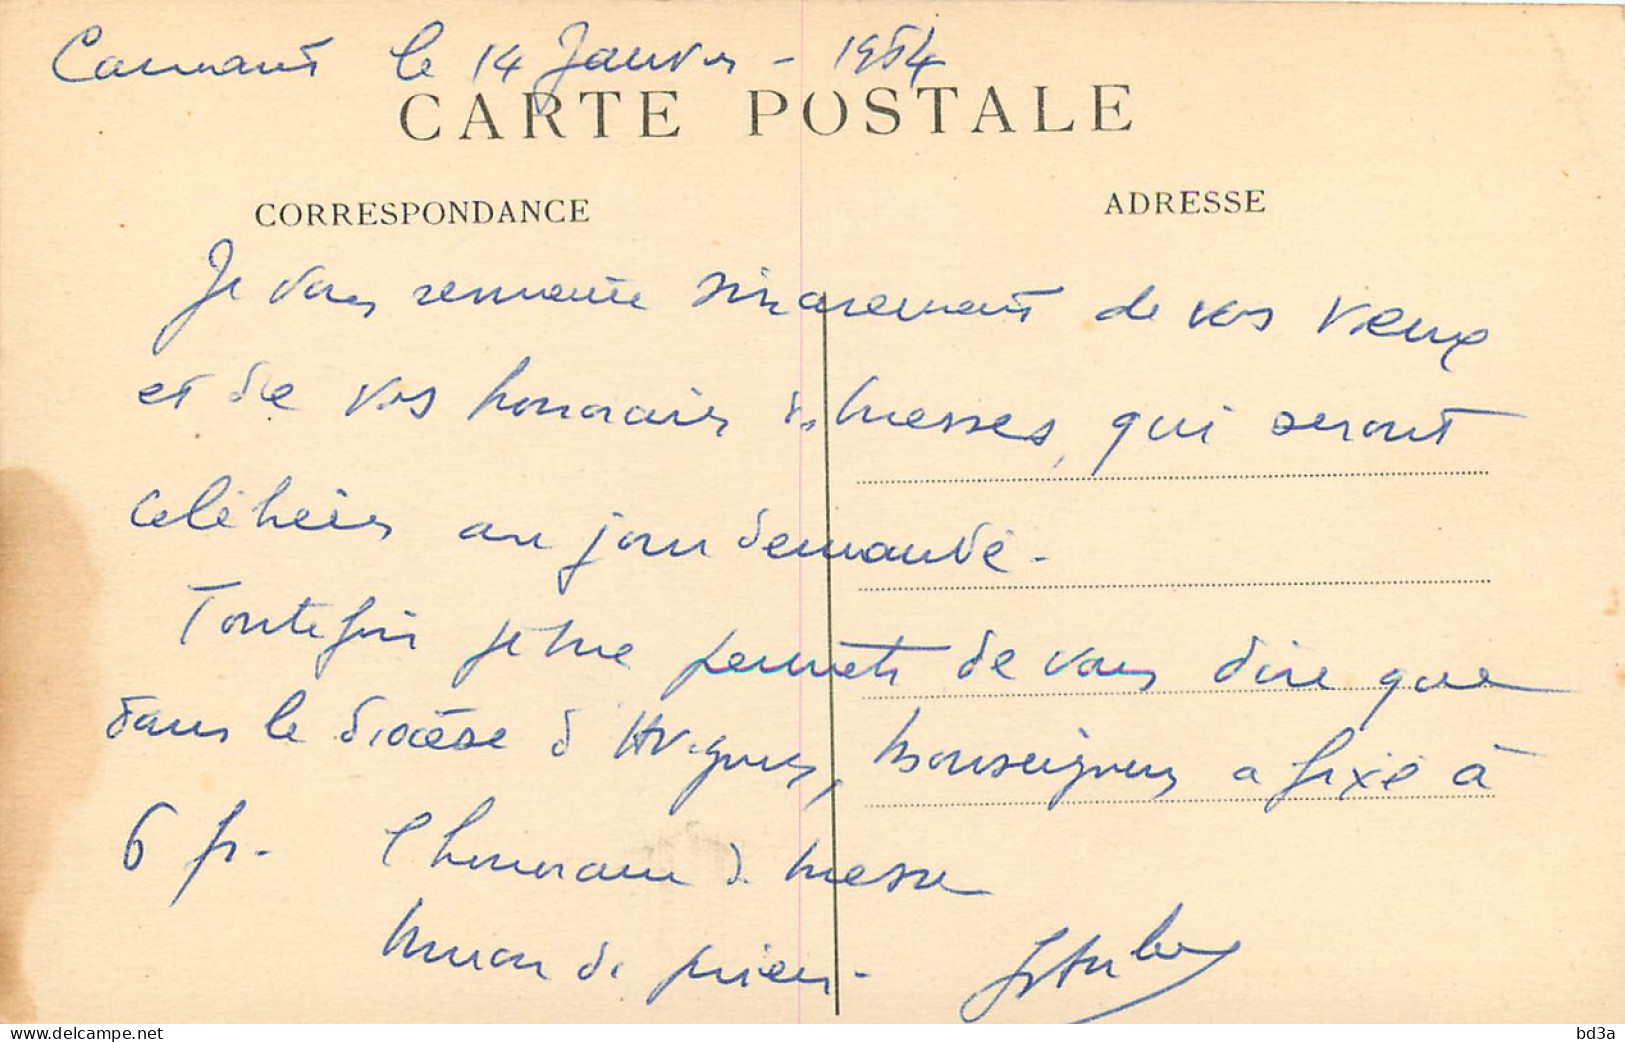 le 14 Janvier - 1954
CARTE POSTALE
CORRESPONDANCE
ADRESSE
Je vous remercie sincèrement de vos vœux
et de vos honoraires de messes, qui seront
célébrées au jour demandé.
Toutefois je me permets de vous dire que
dans le diocèse d'Avignon, Monseigneur a fixé à
6 fr. l'honoraire de messe
Union de prières.
www.delcampe.net
bd3a